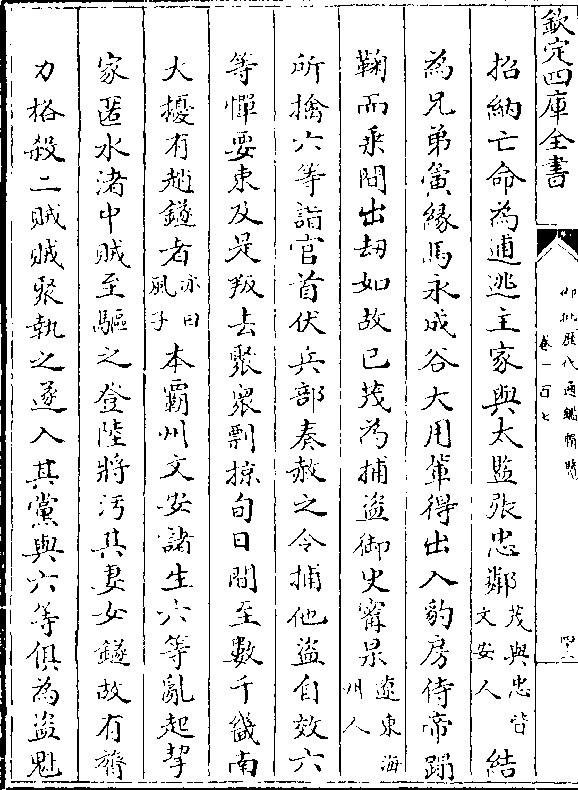 欽定四庫全書
御批歷代通鑑輯覽
卷一百七
招納亡命為逋逃主家與太監張忠鄰茂與忠皆文安人結
為兄弟夤緣馬永成谷大用輩得出入豹房侍帝蹋
鞠而乗間出刼如故已茂為捕盗御史甯杲遼東海州人
所擒六等詣官首伏兵部奏赦之令捕他盗自效六
等憚要束及是叛去聚眾剽掠旬日間至數千畿南
大擾有趙鐩者亦曰風子本霸州文安諸生六等亂起挈
家匿水渚中賊至驅之登陸將污其妻女鐩故有膂
力格殺二賊賊聚執之遂入其黨與六等俱為盗魁